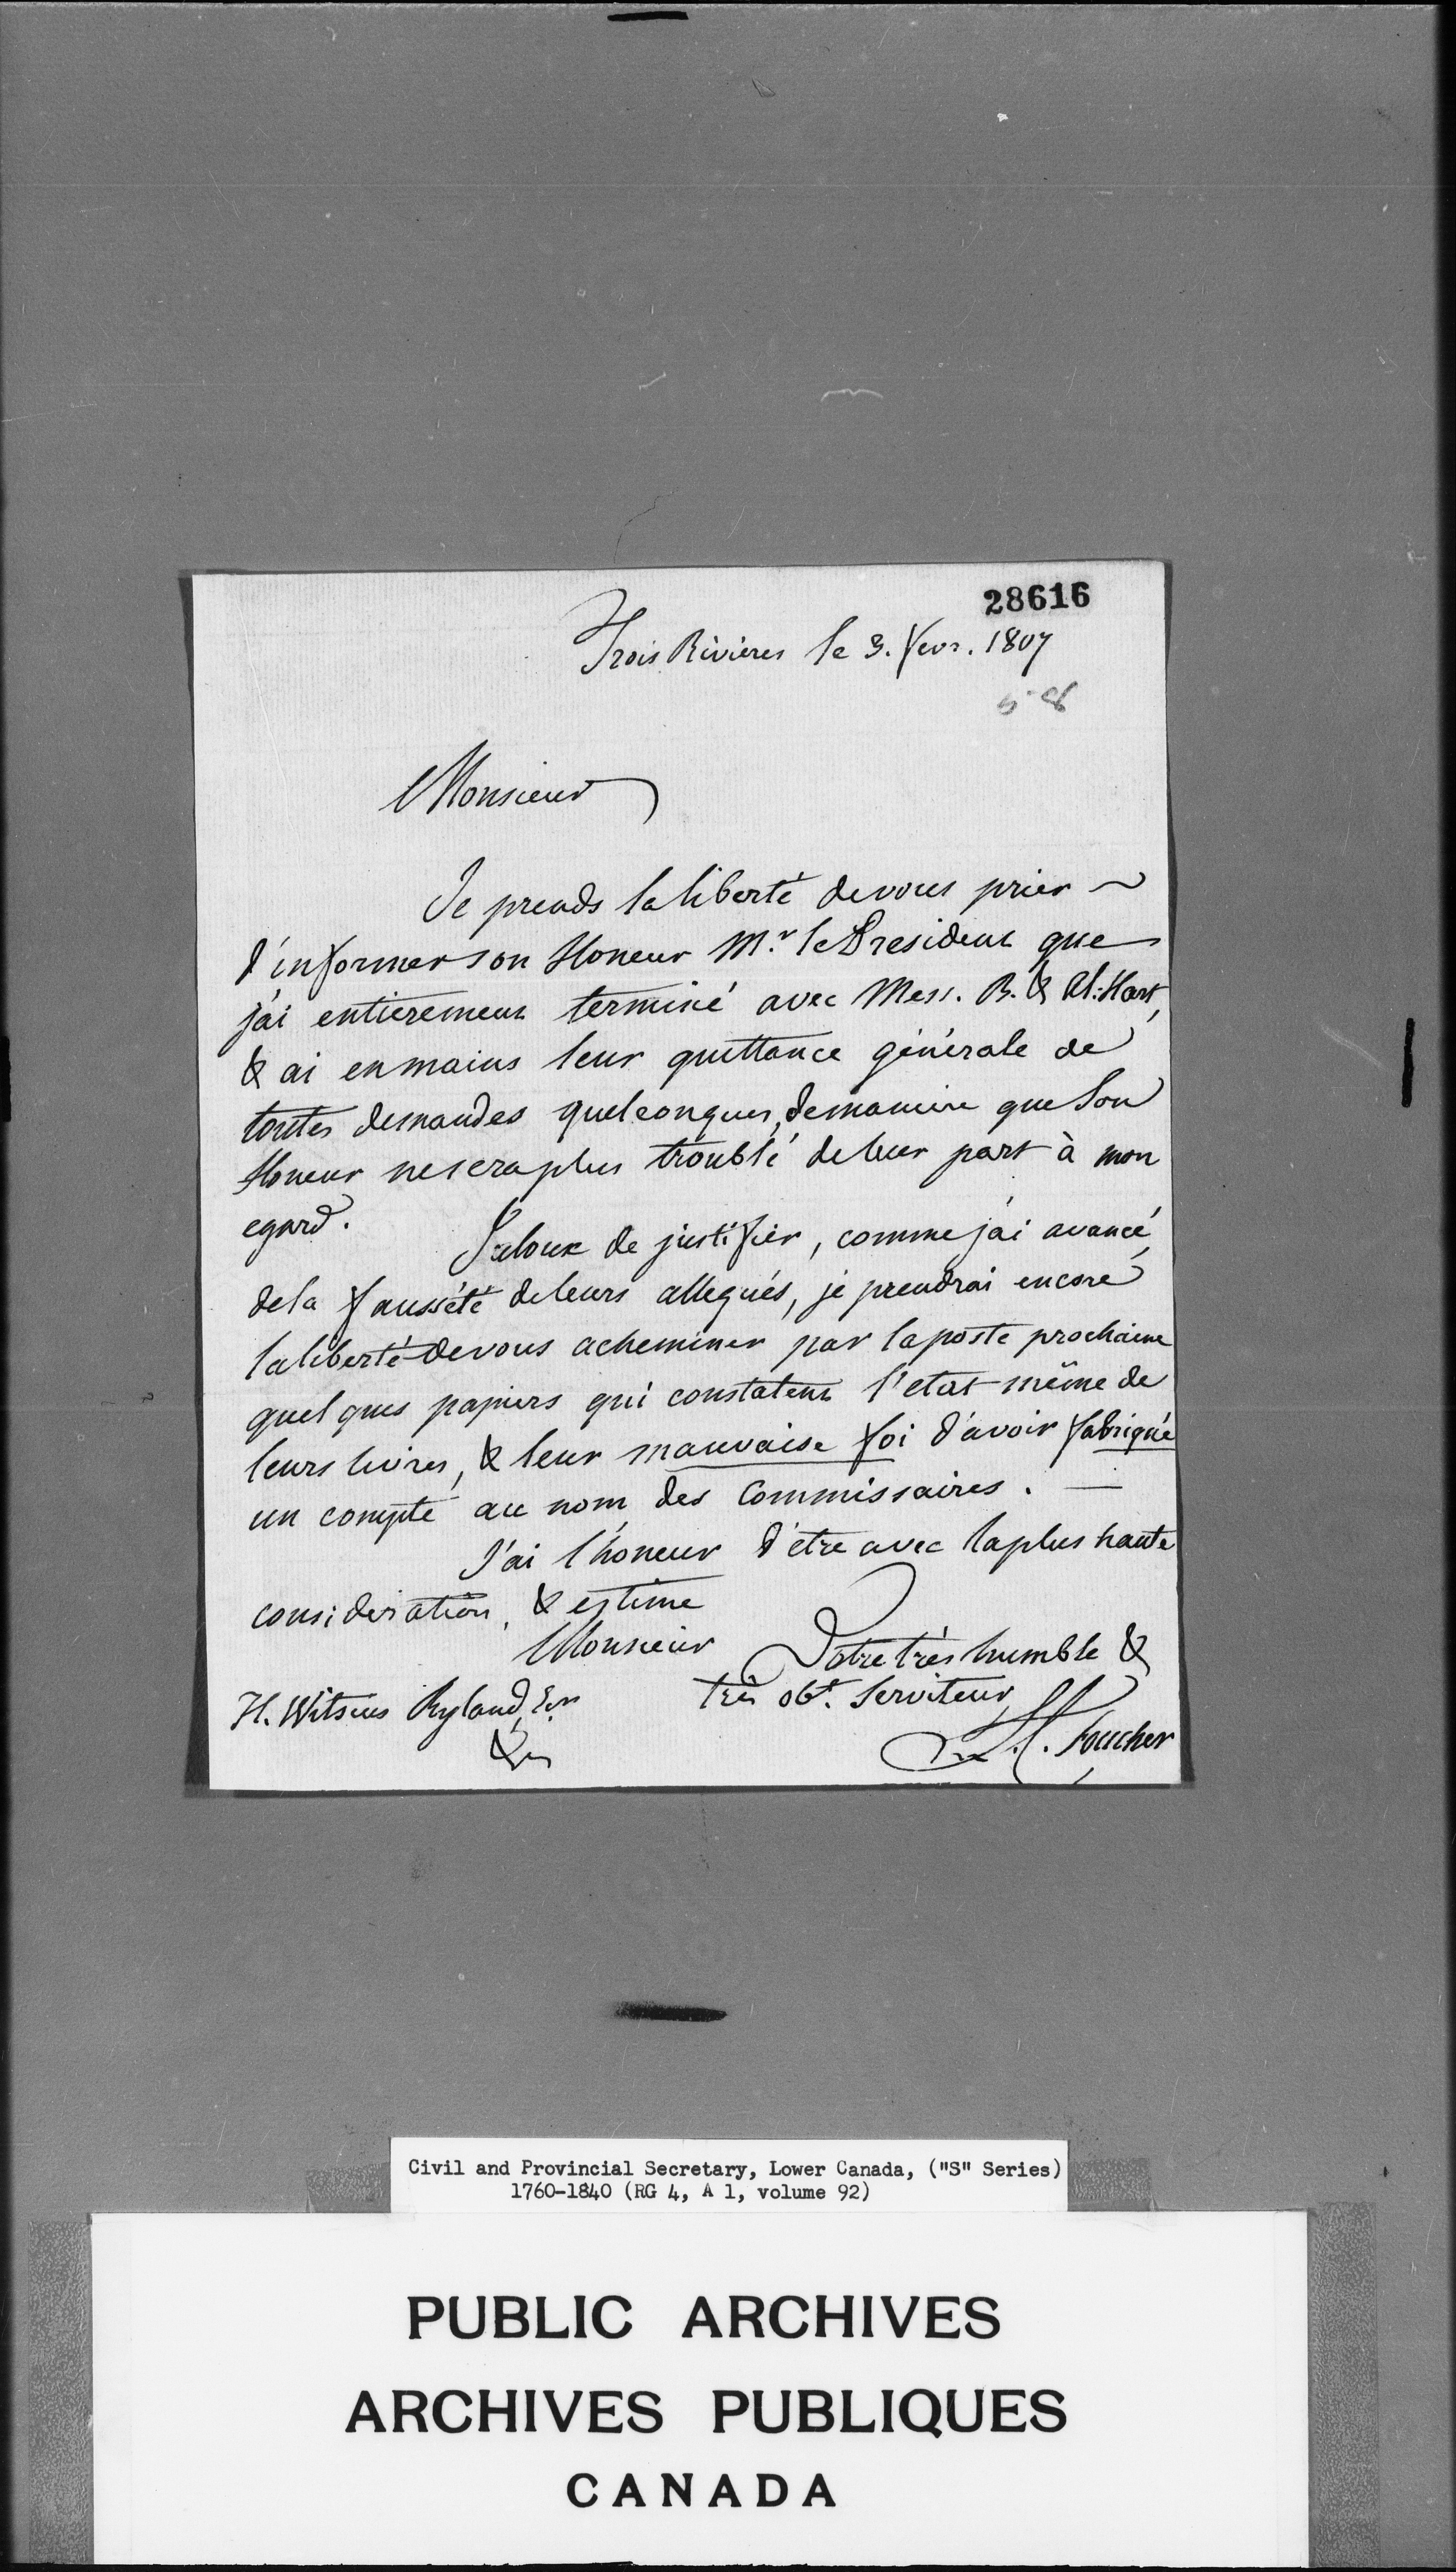 28616
Trois Rivieres le 3. fevr. 1807
Monsieur
Je prends la liberté de vous prier
d'informer son Honeur Mr. le President que
j'ai entierement terminé avec Mess. B. & Al: Hart,
& ai en mains leur quittance générale de
toutes demandes quelconques, de maniere que Son
Honeur ne sera plus troublé de leur part à mon
egard.
Jaloux de justifier, comme j'ai avancé,
de la fausséte de leurs allegués, je prendrai encore
la liberté de vous acheminer par la poste prochaine
quelques papiers qui constatent l'etat même de
leurs livres, & leur mauvaise foi d'avoir fabriqué
un compte au nom des Commissaires. —
J'ai l'honeur d'etre avec la plus haute
consideration, & estime
Monsieur Votre très humble &
H. Witsius Ryland, Esr. très obt. Serviteur
& L. C. Foucher
Civil and Provincial Secretary, Lower Canada, ("S" Series)
1760-1840 (RG 4, A 1, volume 92)
PUBLIC ARCHIVES
ARCHIVES PUBLIQUES
CANADA